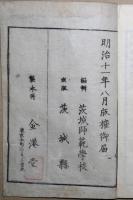 明治十一年八月版權御届
編輯 茨城師範學校
出版 茨城縣
製本所 金港堂